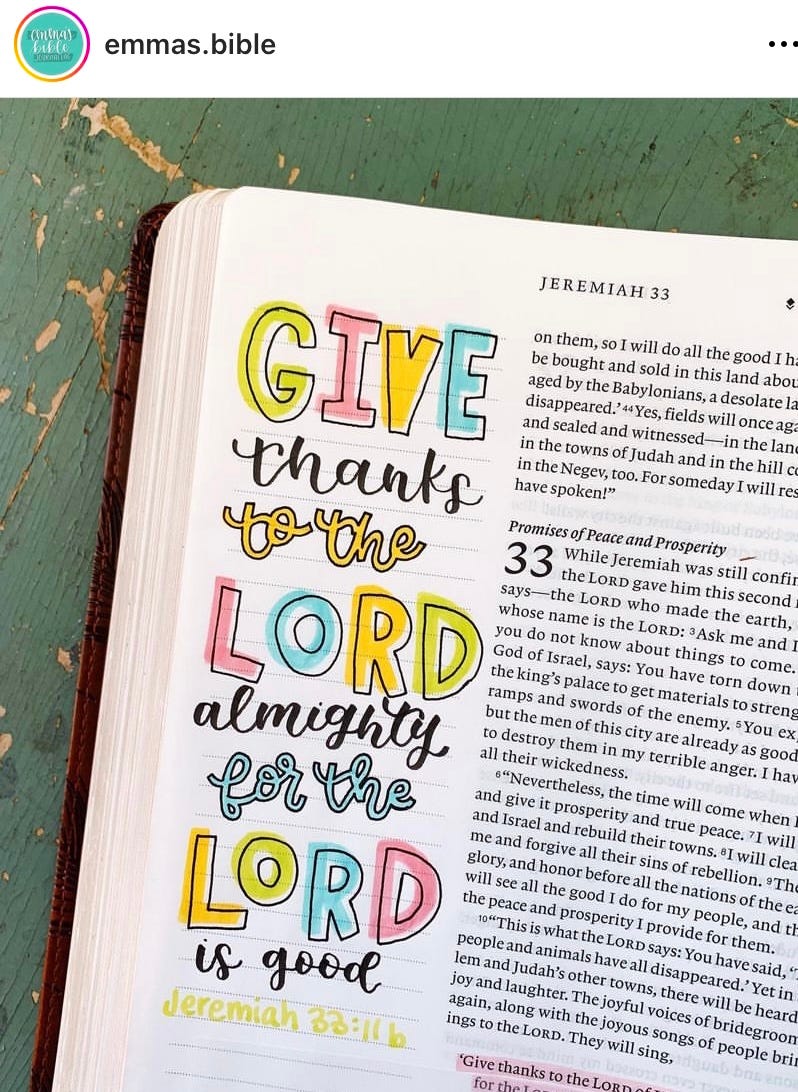 emma's
bible
JOURNALING
emmas.bible
GIVE
thanks
to the
LORD
almighty
for the
LORD
is good
Jeremiah 33:11b
JEREMIAH 33
on them, so I will do all the good I ha
be bought and sold in this land abou
aged by the Babylonians, a desolate la
disappeared.’ 44Yes, fields will once aga
and sealed and witnessed—in the lan
in the towns of Judah and in the hill c
in the Negev, too. For someday I will res
have spoken!”
Promises of Peace and Prosperity
33 While Jeremiah was still confin
the LORD gave him this second
says—the LORD who made the earth,
whose name is the LORD: 3Ask me and I
you do not know about things to come.
God of Israel, says: You have torn down
the king’s palace to get materials to streng
ramps and swords of the enemy. 5You ex
but the men of this city are already as good
to destroy them in my terrible anger. I hav
all their wickedness.
6“Nevertheless, the time will come when I
and give it prosperity and true peace. 7I will
and Israel and rebuild their towns. 8I will clea
me and forgive all their sins of rebellion. 9The
glory, and honor before all the nations of the ea
will see all the good I do for my people, and th
the peace and prosperity I provide for them.
10“This is what the LORD says: You have said, ‘T
people and animals have all disappeared.’ Yet in
lem and Judah’s other towns, there will be heard
joy and laughter. The joyful voices of bridegroom
again, along with the joyous songs of people brin
ings to the LORD. They will sing,
‘Give thanks to the LORD of
for the LOR